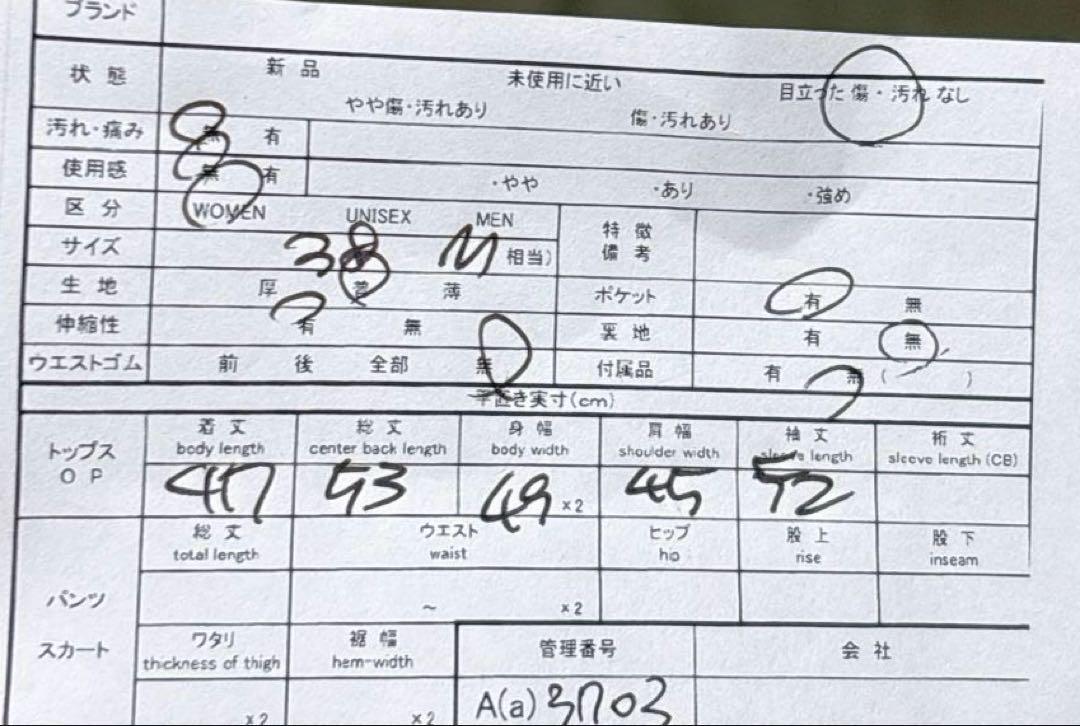 ブランド
状態 新品 未使用に近い 目立った傷・汚れなし
やや傷・汚れあり 傷・汚れあり
汚れ・痛み 無 有
使用感 無 有 ・やや ・あり ・強め
区分 WOMEN UNISEX MEN 特徴
備考
サイズ 38 M 相当)
生地 厚 普 薄 ポケット 有 無
伸縮性 有 無 裏地 有 無
ウエストゴム 前 後 全部 無 付属品 有 無 ( )
平置き実寸(cm)
トップス
OP
着丈 総丈 身幅 肩幅 袖丈 裄丈
body length center back length body width shoulder width sleeve length sleeve length (CB)
47 53 49 ×2 45 52
総丈 ウエスト ヒップ 股上 股下
total length waist hip rise inseam
パンツ ～ ×2
スカート
ワタリ 裾幅 管理番号 会社
thickness of thigh hem-width
×2 ×2 A(a) 3703